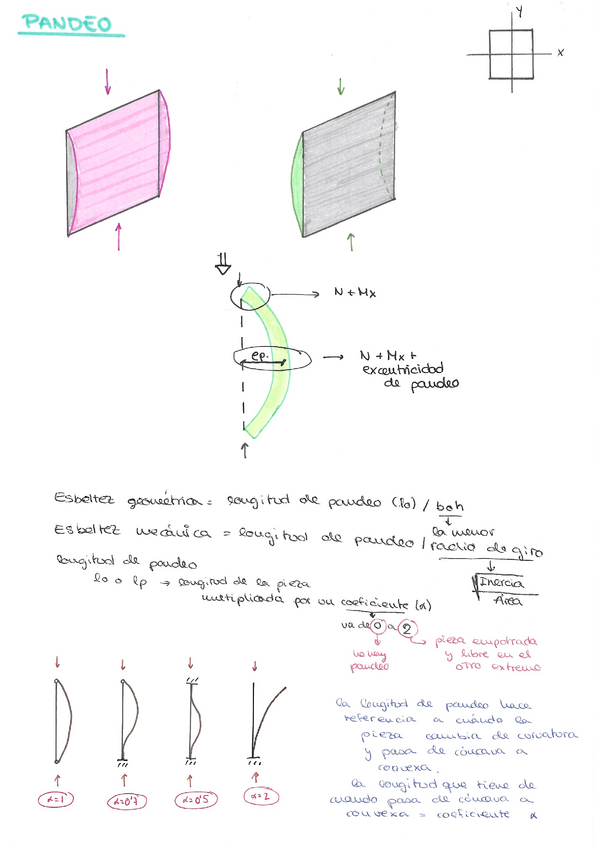 PANDEO
Y
X
N + Mx
ep.
N + Mx +
excentricidad
de pandeo
Esbeltez geométrica = longitud de pandeo (lo) / b o h
la menor
Esbeltez mecánica = longitud de pandeo / radio de giro
longitud de pandeo
lo o lp → longitud de la pieza
multiplicada por un coeficiente (α)
Inercia
Área
va de 0 a 2
no hay
pandeo
pieza empotrada
y libre en el
otro extremo
α=1
α=0'7
α=0'5
α=2
la longitud de pandeo hace
referencia a cuándo la
pieza cambia de curvatura
y pasa de cóncava a
convexa.
la longitud que tiene de
cuando pasa de cóncava a
convexa = coeficiente α